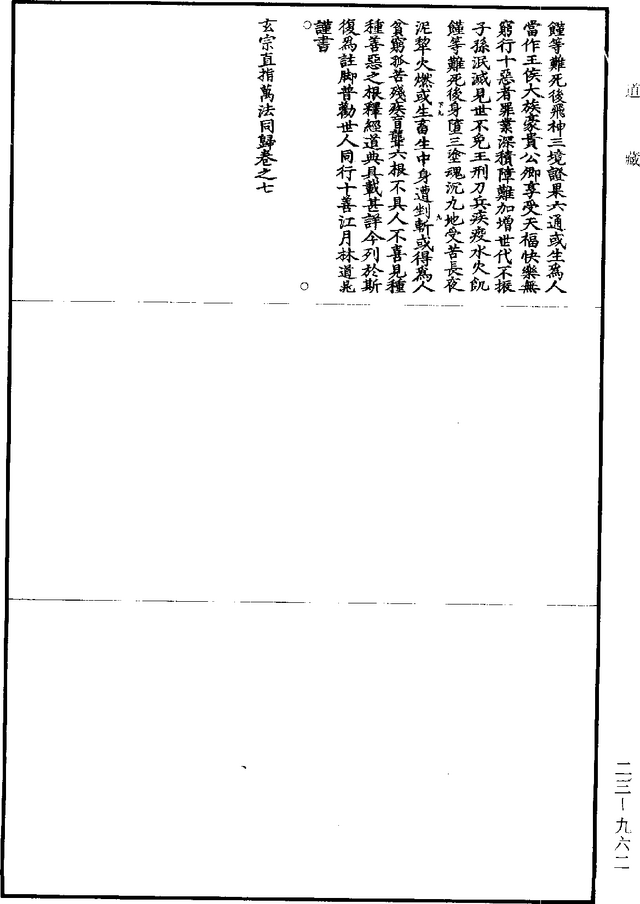 道藏
饉等難死後飛神三境證果六通或生為人
當作王侯大族豪貴公卿享受天福快樂無
窮行十惡者罪業深積障難加增世代不振
子孫泯滅見世不免王刑刀兵疾疫水火飢
饉等難死後身墮三塗魂沉九地受苦長夜
泥犂火燃或生畜生中身遭剉斬或得為人
貧窮孤苦殘疾盲聾六根不具人不喜見種
種善惡之根釋經道典具載甚詳今列於斯
復為註脚普勸世人同行十善江月林道晁
謹書
玄宗直指萬法同歸卷之七
二三-九六二